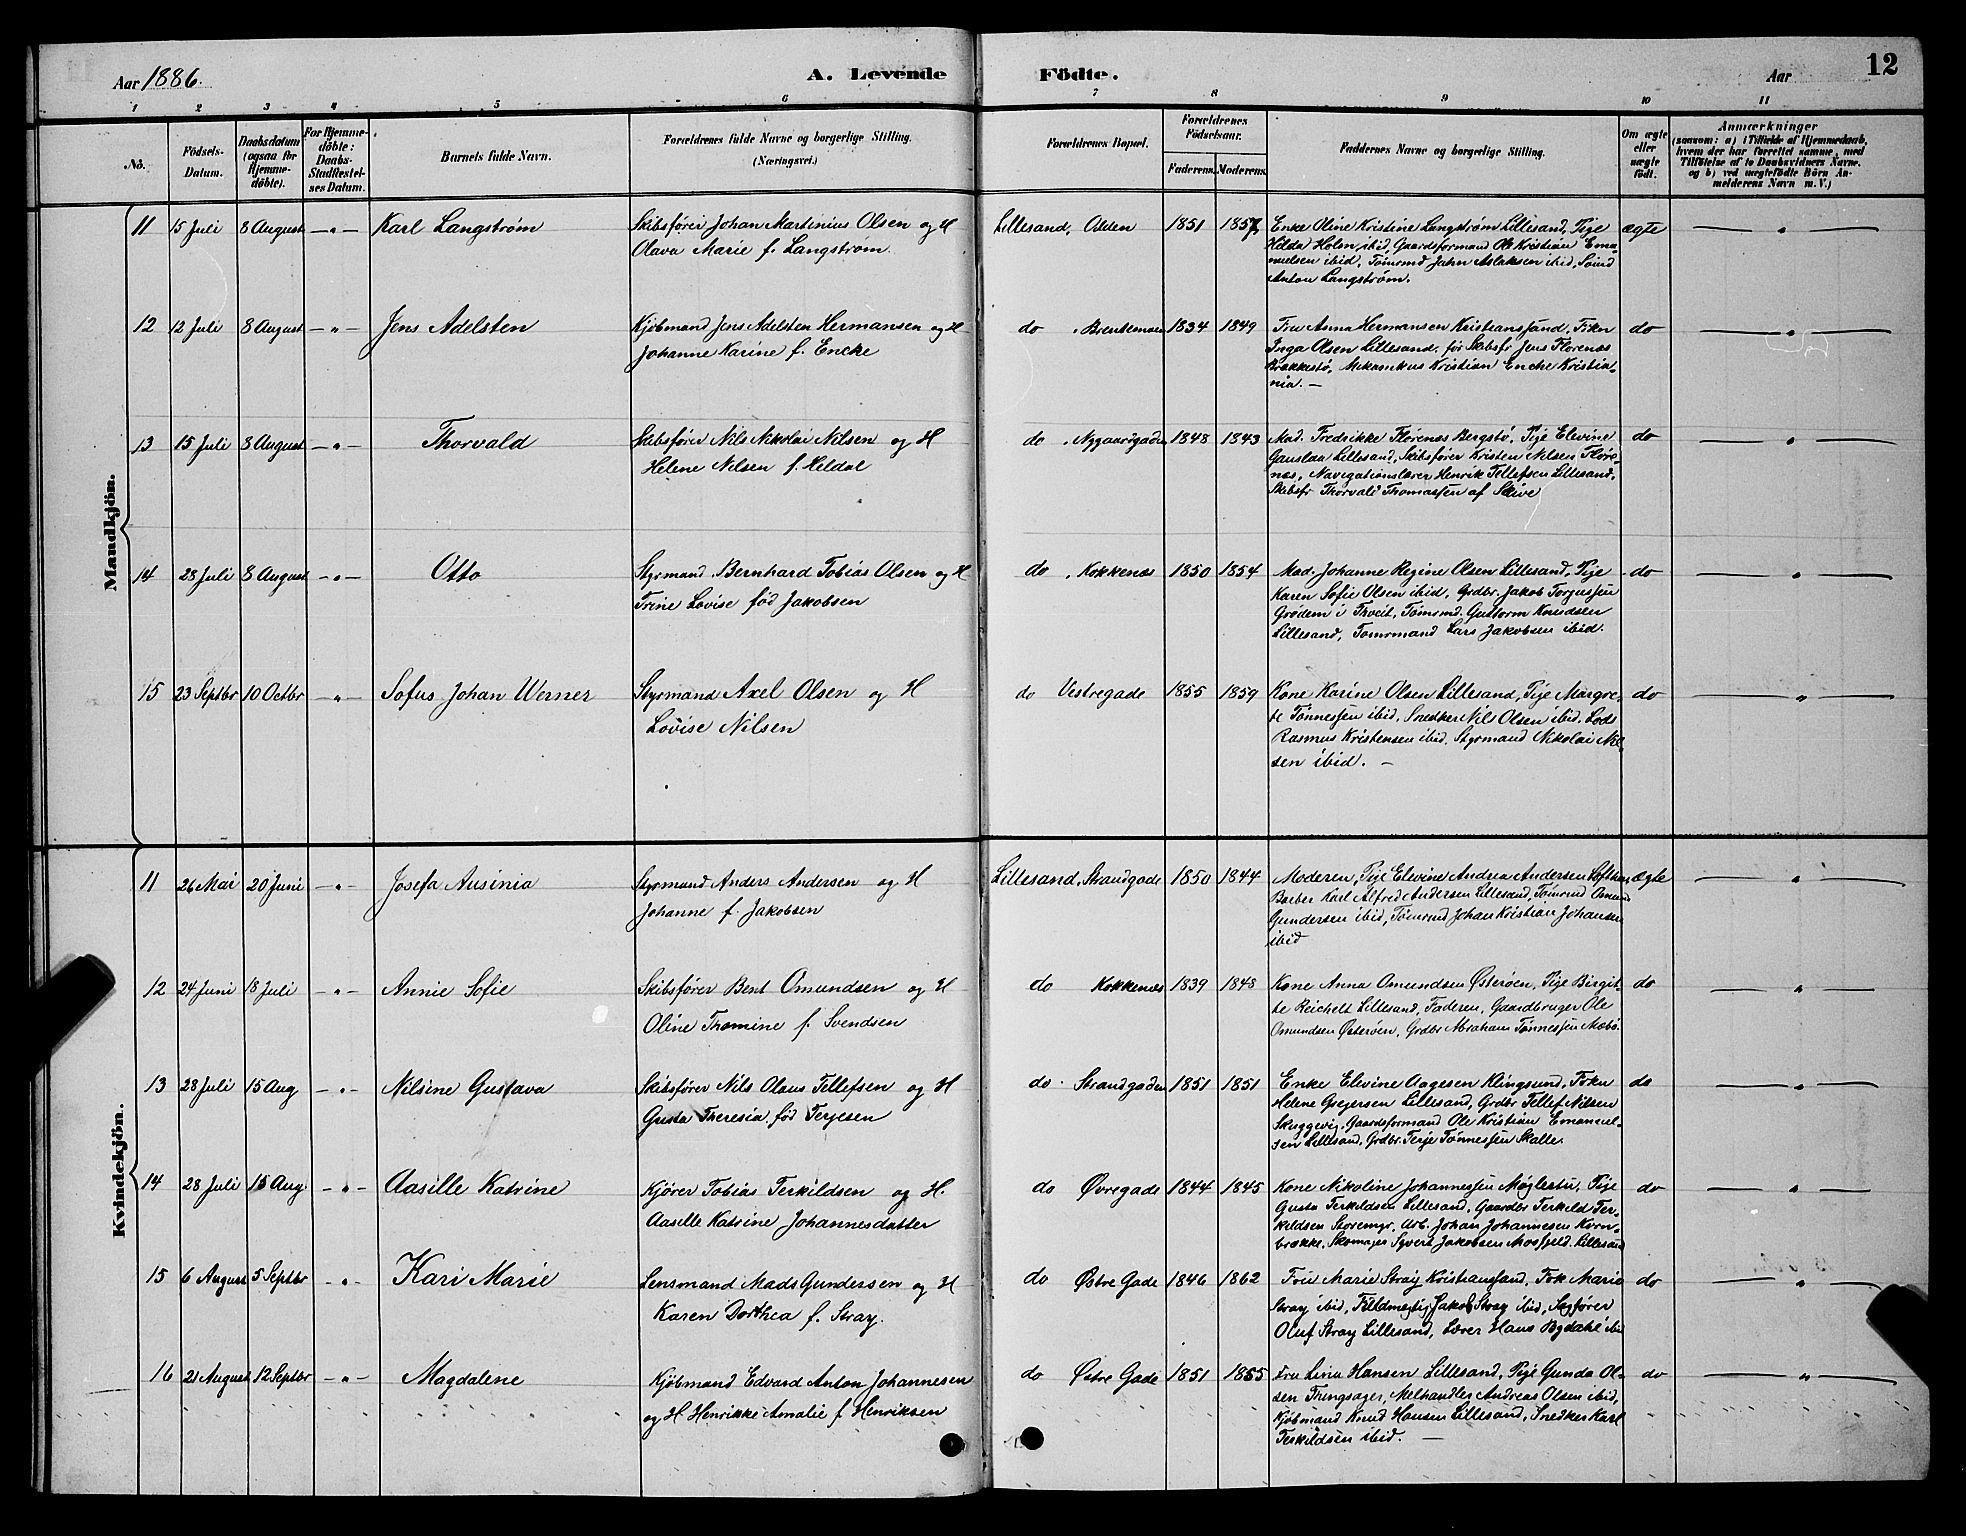 Aar 1886.
A. Levende Födte.
Aar
12
1 2 3 4 5 6 7 8 9 10 11
No.
Födsels-Datum.
Daabsdatum (ogsaa for Hjemmedöbte).
For Hjemmedöbte: Daabs-Stadfæstelses Datum.
Barnets fulde Navn.
Forældrenes fulde Navne og borgerlige Stilling. (Næringsvei.)
Forældrenes Bopæl.
Forældrenes Födselsaar.
Faderens. Moderens.
Faddernes Navne og borgerlige Stilling.
Om ægte eller uægte födt.
Anmærkninger
(saasom: a) i Tilfælde af Hjemmedaab, hvem der har forrettet samme, med Tilföielse af to Daabsvidners Navne, og b) ved uægtefödte Börn Anmelderens Navn m. V.)
Mandkjön.
11 15 Juli 8 August —"— Karl Langstrøm
Skibsfører Johan Martinius Olsen og H
Olava Marie f. Langstrøm.
Lillesand, Osden 1851 1857
Enke Oline Kristine Langstrøm Lillesand, Pige
Hilda Holm, ibid, Gaardsformand Ole Kristian Ema-
nuelsen ibid, Tømrmd Jahn Aslaksen ibid, Sømd
Anton Langstrøm.
ægte — " —
12 12 Juli 8 August —"— Jens Adelsten
Kjøbmand Jens Adelsten Hermansen og H
Johanne Karine f. Encke
do 1834 1849
Fru Anna Hermansen Kristianssand, Frkn
Inga Olsen Lillesand, før Skibsfr Jens Florenæs
Brækkestø, Mekanikus Kristian Encke Kristia-
nia. —
do — " —
13 15 Juli 8 August —"— Thorvald
Skibsfører Nils Nikolai Nilsen og H
Helene Nilsen f. Heldal
do Nygaardsgaden 1848 1843
Mad. Fredrikke Florenæs Bergstø, Pige Elevine
Gauslaa Lillesand, Skibsfører Kristen Nilsen Flore-
næs, Navigationslærer Henrik Tellefsen Lillesand,
Skibsfr Thorvald Thomassen af Skive
do — " —
14 28 Juli 8 August —"— Otto
Styrmand Bernhard Tobias Olsen og H
Trine Lovise fød Jakobsen
do Kokkenæs 1850 1854
Mad. Johanne Regine Olsen Lillesand, Pige
Karen Sofie Olsen ibid, Grdbr. Jakob Torgussen
Grødem i Tveit, Tømrmd. Guttorm Knudsen
Lillesand, Tomrmand Lars Jakobsen ibid.
do — " —
15 23 Septbr 10 Octbr —"— Sofus Johan Werner
Styrmand Axel Olsen og H
Lovise Nilsen
do Vestregade 1855 1859
Kone Karine Olsen Lillesand, Pige Margre-
te Tønnessen ibid, Snedker Nils Olsen ibid, Lods
Rasmus Kristensen ibid, Styrmand Nikolai Nil-
sen ibid. —
do — " —
Kvindekjön.
11 26 Mai 20 Juni —"— Josefa Ausinia
Styrmand Anders Andersen og H
Johanne f. Jakobsen
Lillesand, Strandgade 1850 1844
Moderen, Pige Elevine Andrea Andersen
Barber Karl Alfred Andersen Lillesand, Tømrmd Osmund
Gundersen ibid, Tømrmd Johan Kristian Johansen
ibid
ægte — " —
12 24 Juni 18 Juli —"— Annie Sofie
Skibsfører Bent Omundsen og H
Oline Thomine f. Svendsen
do Kokkenæs 1839 1848
Kone Anna Omundsen Østerøen, Pige Birgit-
te Reichelt Lillesand, Faderen, Gaardbruger Ole
Omundsen Østerøen, Grdbr Abraham Tønnessen Mæbø.
do — " —
13 28 Juli 15 Aug —"— Nilsine Gustava
Skibsfører Nils Olaus Tellefsen og H
Gusta Theresia fød Terjesen
do Strandgaden 1851 1851
Enke Elevine Aagesen Klingsund, Frkn
Helene Gregersen Lillesand, Grdbr Tellef Nilsen
Skuggevig, Gaardsformand Ole Kristian Emanuel-
sen Lillesand, Grdbr. Terje Tønnessen Skalle.
do — " —
14 28 Juli 15 Aug —"— Aasille Katrine
Kjører Tobias Terkildsen og H.
Aasille Katrine Johannesdatter
do Øvregade 1844 1845
Kone Nikoline Johannessen Møglestu, Pige
Gusta Terkildsen Lillesand, Gaardbr Terkild Ter-
kildsen Storemyr, Arb. Johan Johannesen Korn-
brække, Skomager Syvert Jakobsen Mosfjeld. Lillesand
do — " —
15 6 August 5 Septbr —"— Kari Marie
Lensmand Mads Gundersen og H
Karen Dorthea f. Stray.
do Østre Gade 1846 1862
Fru Marie Stray Kristianssand, Frk Marie
Stray ibid, Fuldmægtig Jakob Stray ibid, Sagfører
Oluf Stray Lillesand, Lærer Hans Bydahl ibid
do — " —
16 21 August 12 Septbr —"— Magdalene
Kjøbmand Edvard Anton Johannesen
og H Henrikke Amalie f Henriksen
do Østre Gade 1851 1855
Fru Lina Hansen Lillesand, Pige Gunda Ol-
sen Tingsager, Melhandler Andreas Olsen ibid,
Kjøbmand Knud Hansen Lillesand, Snedker Karl
Terkildsen ibid. —
do — " —